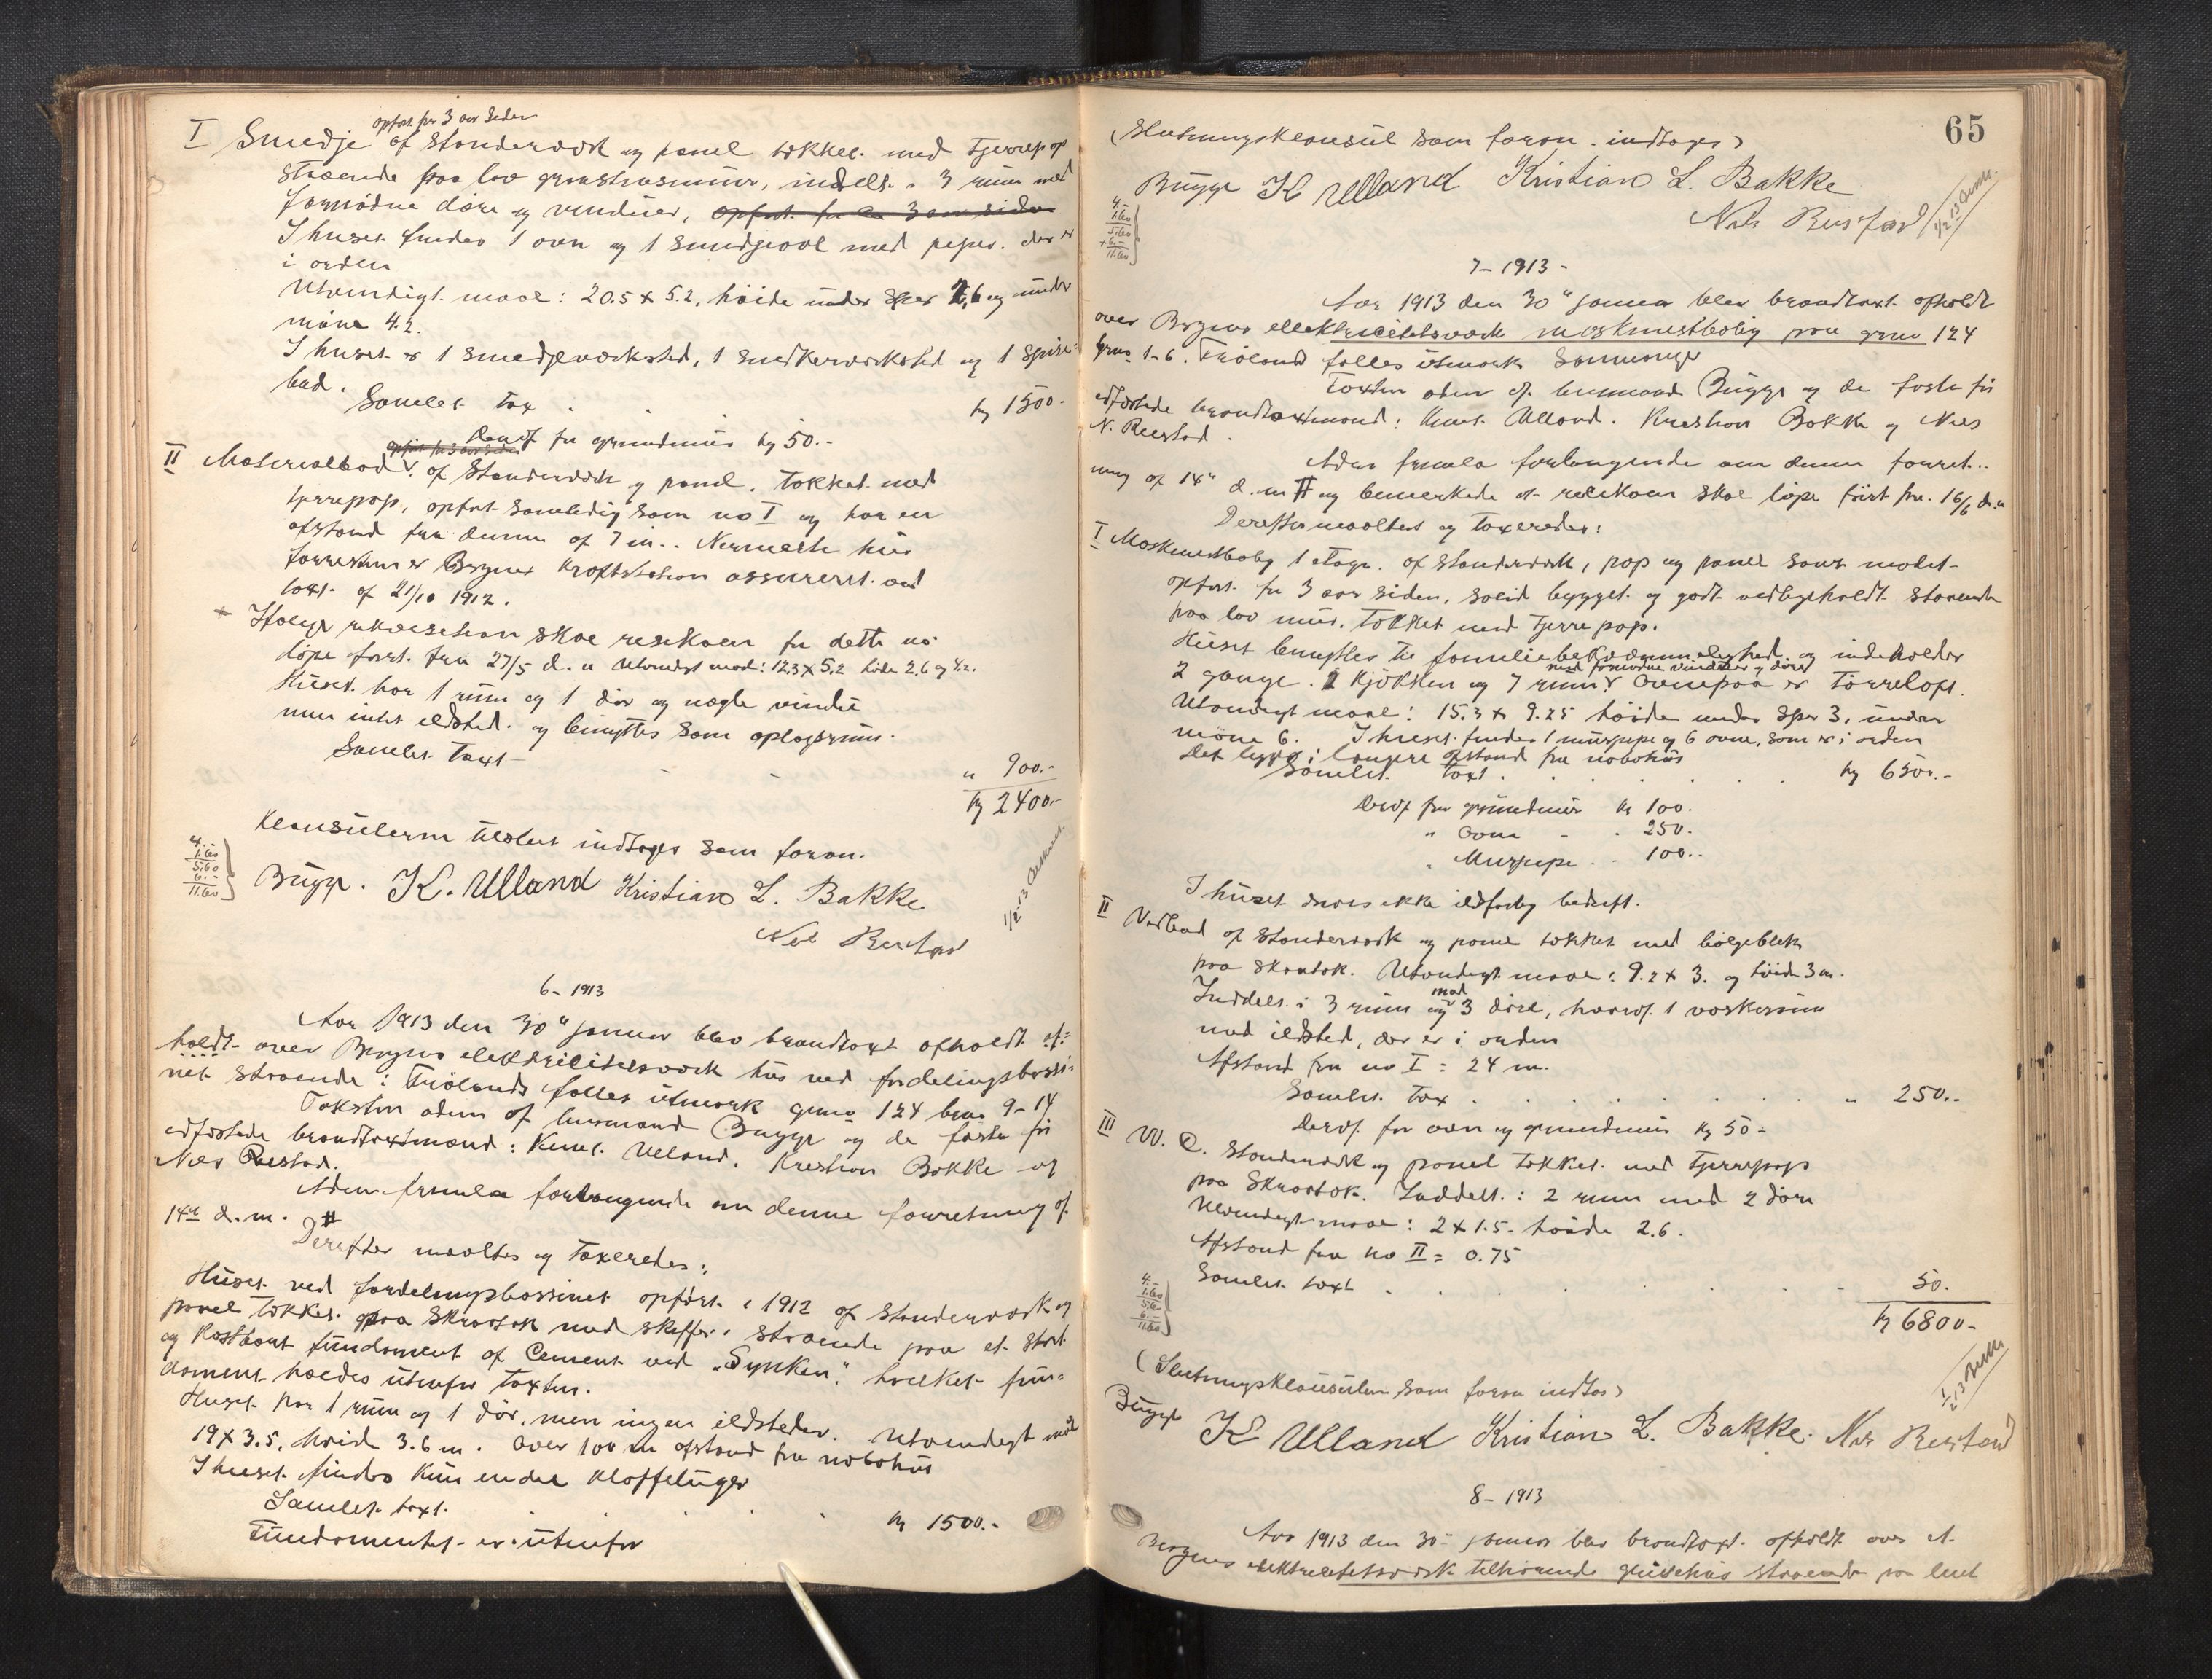 opført for 3 aar siden
I Smedje af Stenderværk og panel tækket med Tjærepap
staaende paa lav graastensmur, inddelt i 3 rum med
fornødne døre og vinduer, opført for 3 aar siden
I huset findes 1 ovn og 1 smedjeovl med piper. der er
i orden
Utvendigt maal: 20.5 x 5.2, høide under sper 2,6 og under
møne 4.2.
I huset er 1 smedjeværksted, 1 snedkerværksted og 1 spise-
bad.
Samlet tax . . . kr 1500.-
Deraf for grundmur kr 50.-
opført for 3 aar siden
II Materialbod af Stenderværk og panel. Tækket med
tjærepap, opført samtidig som no I og har en
afstand fra denne af 7 m.. Nermeste hus
forresten er Bergens Kraftstation assureret ved
taxt af 21/10 1912.
+ Ifølge rekvisition skal resikoen for dette no
løpe først fra 27/5 d. a Utvendigt maal: 12.3 x 5.2 høide 2.6 og 4.2.
Huset har 1 rum og 1 dør og nogle vindu
men intet ildsted. og benyttes som oplagsrum.
Samlet Taxt - - - " 900.-
kr 2400.-
Klausulerne tilslut indtages som foran.
4.-
1.60
5.60
6.-
11.60
Bugge. K. Ulland Kristian L. Bakke
Nils Reistad
1/2-13
6- 1913
Aar 1913 den 30" januar blev brandtaxt afholdt af-
holdt over Bergens elektricitetsverk hus ved fordelingsbassi-
net staaende i Frølands fælles utmark gno 124 bno 9-14
Taksten aden af lensmand Bugge og de faste for
edfæstede brandtaxtmænd: Knut Ulland. Kristian Bakke og
Nils Reistad.
Aden fremla forlangende om denne forretning af
14de d. m. #
Derefter maaltes og Taxeredes:
Huset ved fordelingsbassinet opført i 1912 af Stenderværk og
panel tækket paa Skraatak med skiffer. staaende paa et stort
og kostbart fundament af Cement ved "Synken". hvilket fun-
dament holdes utenfor taxten.
Huset har 1 rum og 1 dør, men ingen ildsteder. Utvendigt maal
19 x 3.5. høide 3.6 m. Over 100 m afstand fra nabohus
I huset findes kun endel klaffeluger
Samlet taxt. . . . kr 1500.-
Fundamentet er utenfor
65
(Slutningsklausul som foran indtages)
Bugge K Ulland Kristian L. Bakke
Nils Reistad
4.-
1.60
5.60
+ 6.-
11.60
7- 1913 -
Aar 1913 den 30" januar blev brandtaxt afholdt
over Bergens ellektricitetsværk maskinestbolig paa gno 124
bno 1-6. Frøland fælles utmark Samnanger
Taxten aden af lensmand Bugge og de faste for
edfæstede brandtaxtmænd: Knut Ulland. Kristian Bakke og Nils
N. Reistad.
Aden fremla forlangende om denne forret-
ning af 14" d. m # og bemerkede at resikoen skal løpe først fra 16/6 d. a
Derefter maaltes og taxeredes:
I Maskinestbolig 1 etage. af Stenderværk, pap og panel samt malet-
opført for 3 aar siden, solid bygget og godt vedligeholdt staaende
paa lav mur. Tækket med Tjærepap.
Huset benyttes til familiebekvæmmelighed og indeholder
med fornødne vinduer og døre
2 gange. 1 kjøkken og 7 rum. Ovenpaa er tørreloft.
Utvendigt maal: 15.3 x 9.25 høide under sper 3, under
møne 6. I huset findes 1 murpipe og 6 ovne, som er i orden
Det ligger i længere afstand fra nabohus
Samlet taxt . . . kr 6500.-
Deraf for grundmur kr 100.
" ovne - - 250.
" Murpipe . . 100..
I huset drives ikke ildfarlig bedrift.
II Vedbod af Stenderværk og panel tækket med bølgeblik
paa skraatak. Utvendigt maal: 9.2 x 3. og høide 3 m.
Inddelt i 3 rum med 3 døre, hvoraf 1 vaskerum
med ildsted, der er i orden
Afstand fra no I = 24 m.
Samlet tax . . . " 250.-
Deraf for ovn og grundmur kr 50-
III W. C. Stenderværk og panel tækket med Tjærepap
paa Skraatak. Inddelt i 2 rum med 2 døre
Utvendigt maal: 2 x 1.5- høide 2.6.
Afstand fra no II = 0.75
Samlet taxt . . . 50.
kr 6800-
4.-
1.60
5.60
6.-
11.60
(Slutningsklausulen som foran indtas)
Bugge K Ulland Kristian L. Bakke. Nils Reistad
8- 1913
Aar 1913 den 30- januar blev brandtaxt afholdt over et
Bergens elektricitetsværk tilhørende staaende paa leiet